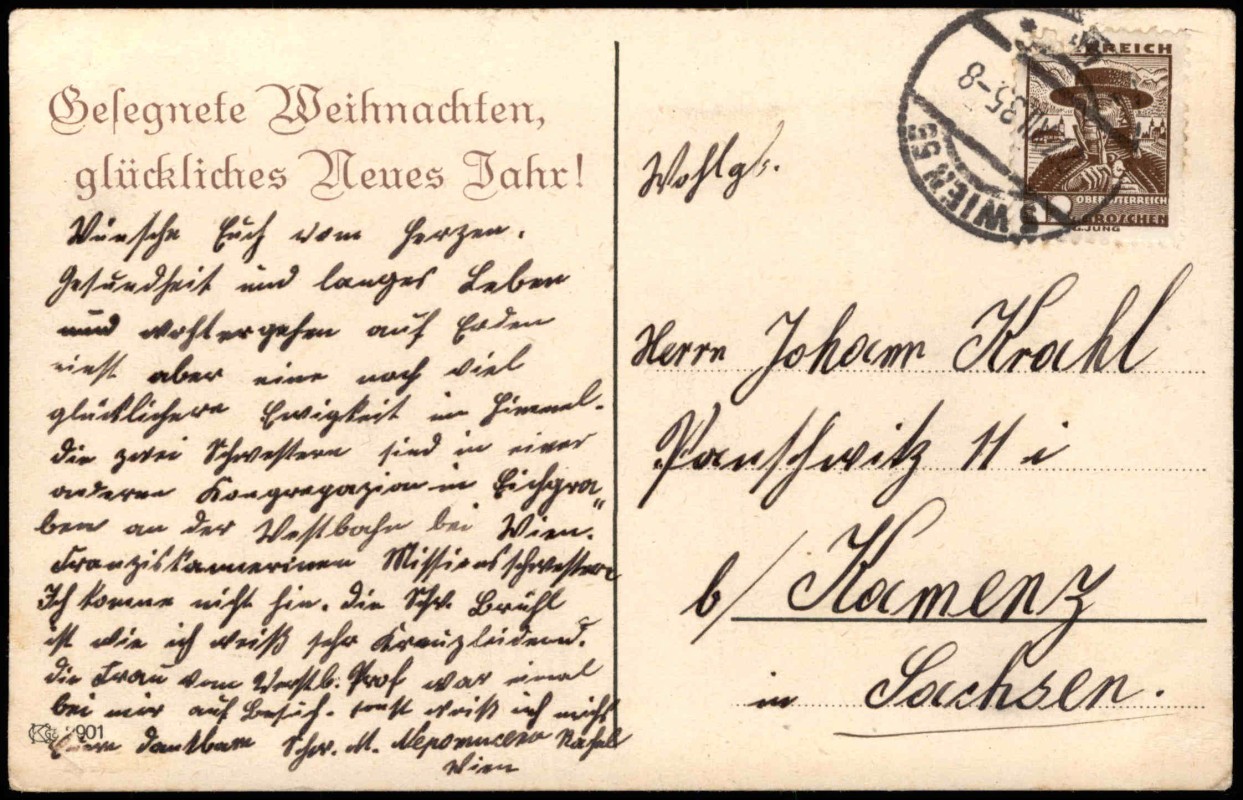 Gesegnete Weihnachten,
glückliches Neues Jahr!
Wünsche Euch vom Herzen.
Gesundheit und langes Leben
und wohlergehen auf Erden
einst aber eine noch viel
glücklichere Ewigkeit im Himmel.
die zwei Schwestern sind in einer
anderen Kongregazion in Eichgra„
ben an der Westbahn bei Wien.
Franziskanerinen Missionsschwestern
Ich komme nicht hin. die Schw. Brühl
ist wie ich weiß sehr Kreuzleidend.
die Frau vom Verstb. Prof war einmal
bei mir auf Besuch. sonst weiß ich nichts
Eure dankbare Schw. M.
Wien
K 901
WIEN
35-8
ÖSTERREICH
OBERÖSTERREICH
GROSCHEN
G.JUNG
Wohlg.
Herrn Johann Krahl
Panschwitz 11 i
b/ Kamenz
in Sachsen.